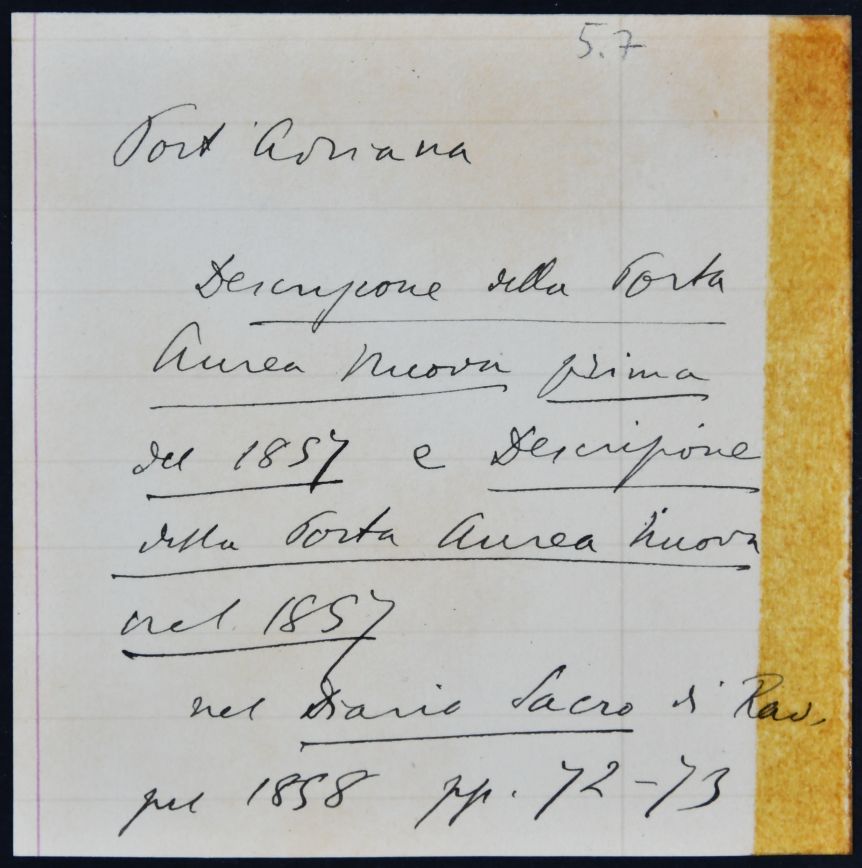 5.7
Port'Adriana
Descrizione della Porta
Aurea Nuova prima
del 1857 e Descrizione
della Porta Aurea Nuova
nel 1857
nel Diario Sacro di Rav.
pel 1858 pp. 72-73